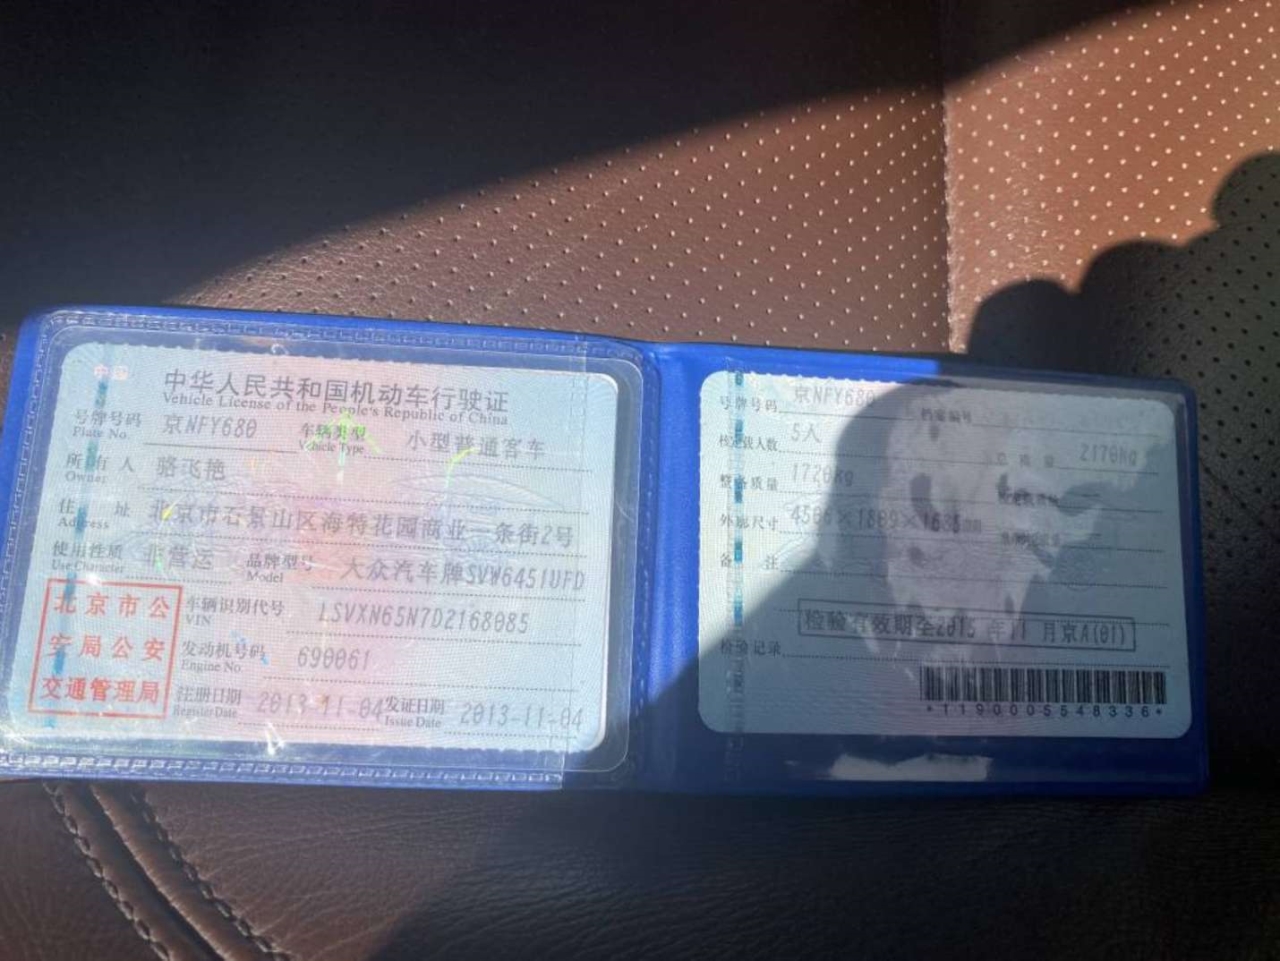 中华人民共和国机动车行驶证
Vehicle License of the People's Republic of China
号牌号码 京NFY680 车辆类型 小型普通客车
Plate No. Vehicle Type
所有人 骆飞艳
Owner
住址 北京市石景山区海特花园商业一条街2号
Address
使用性质 非营运 品牌型号 大众汽车牌SVW6451UFD
Use Character Model
北京市公
安局公安
交通管理局
车辆识别代号 LSVXN65N7D2168085
VIN
发动机号码 690061
Engine No.
注册日期 2013-11-04 发证日期 2013-11-04
Register Date Issue Date
号牌号码 京NFY680 档案编号
核定载人数 5人 总质量 2170kg
整备质量 1720kg
外廓尺寸
备注
检验记录 检验有效期至2015年11月京A(01)
*1190005548336*